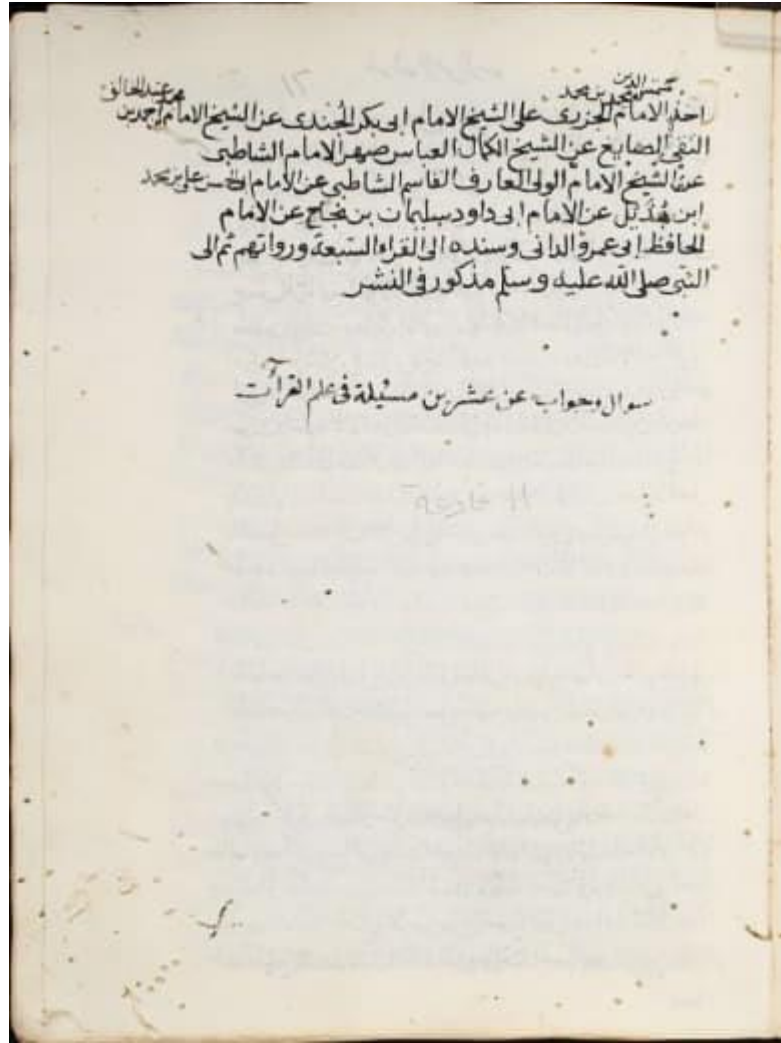 شمس الدين محمد بن محمد
محمد عبد الخالق
اخذ الامام الجزرى على الشيخ الامام ابى بكر الجندى عن الشيخ الامام احمد بن
التقى الصايغ عن الشيخ الكمال العباس صهر الامام الشاطبى
عن الشيخ الامام الولى العارف القاسم الشاطبى عن الامام على بن محمد
ابن هُذَيل عن الامام ابى داود سليمان بن نجاح عن الامام
الحافظ ابى عمرو الدانى وسنده الى القراء السبعة ورواتهم ثم الى
النبى صلى الله عليه وسلم مذكور فى النشر
سوال وجواب عن عشرين مسئيلة فى علم القرآت